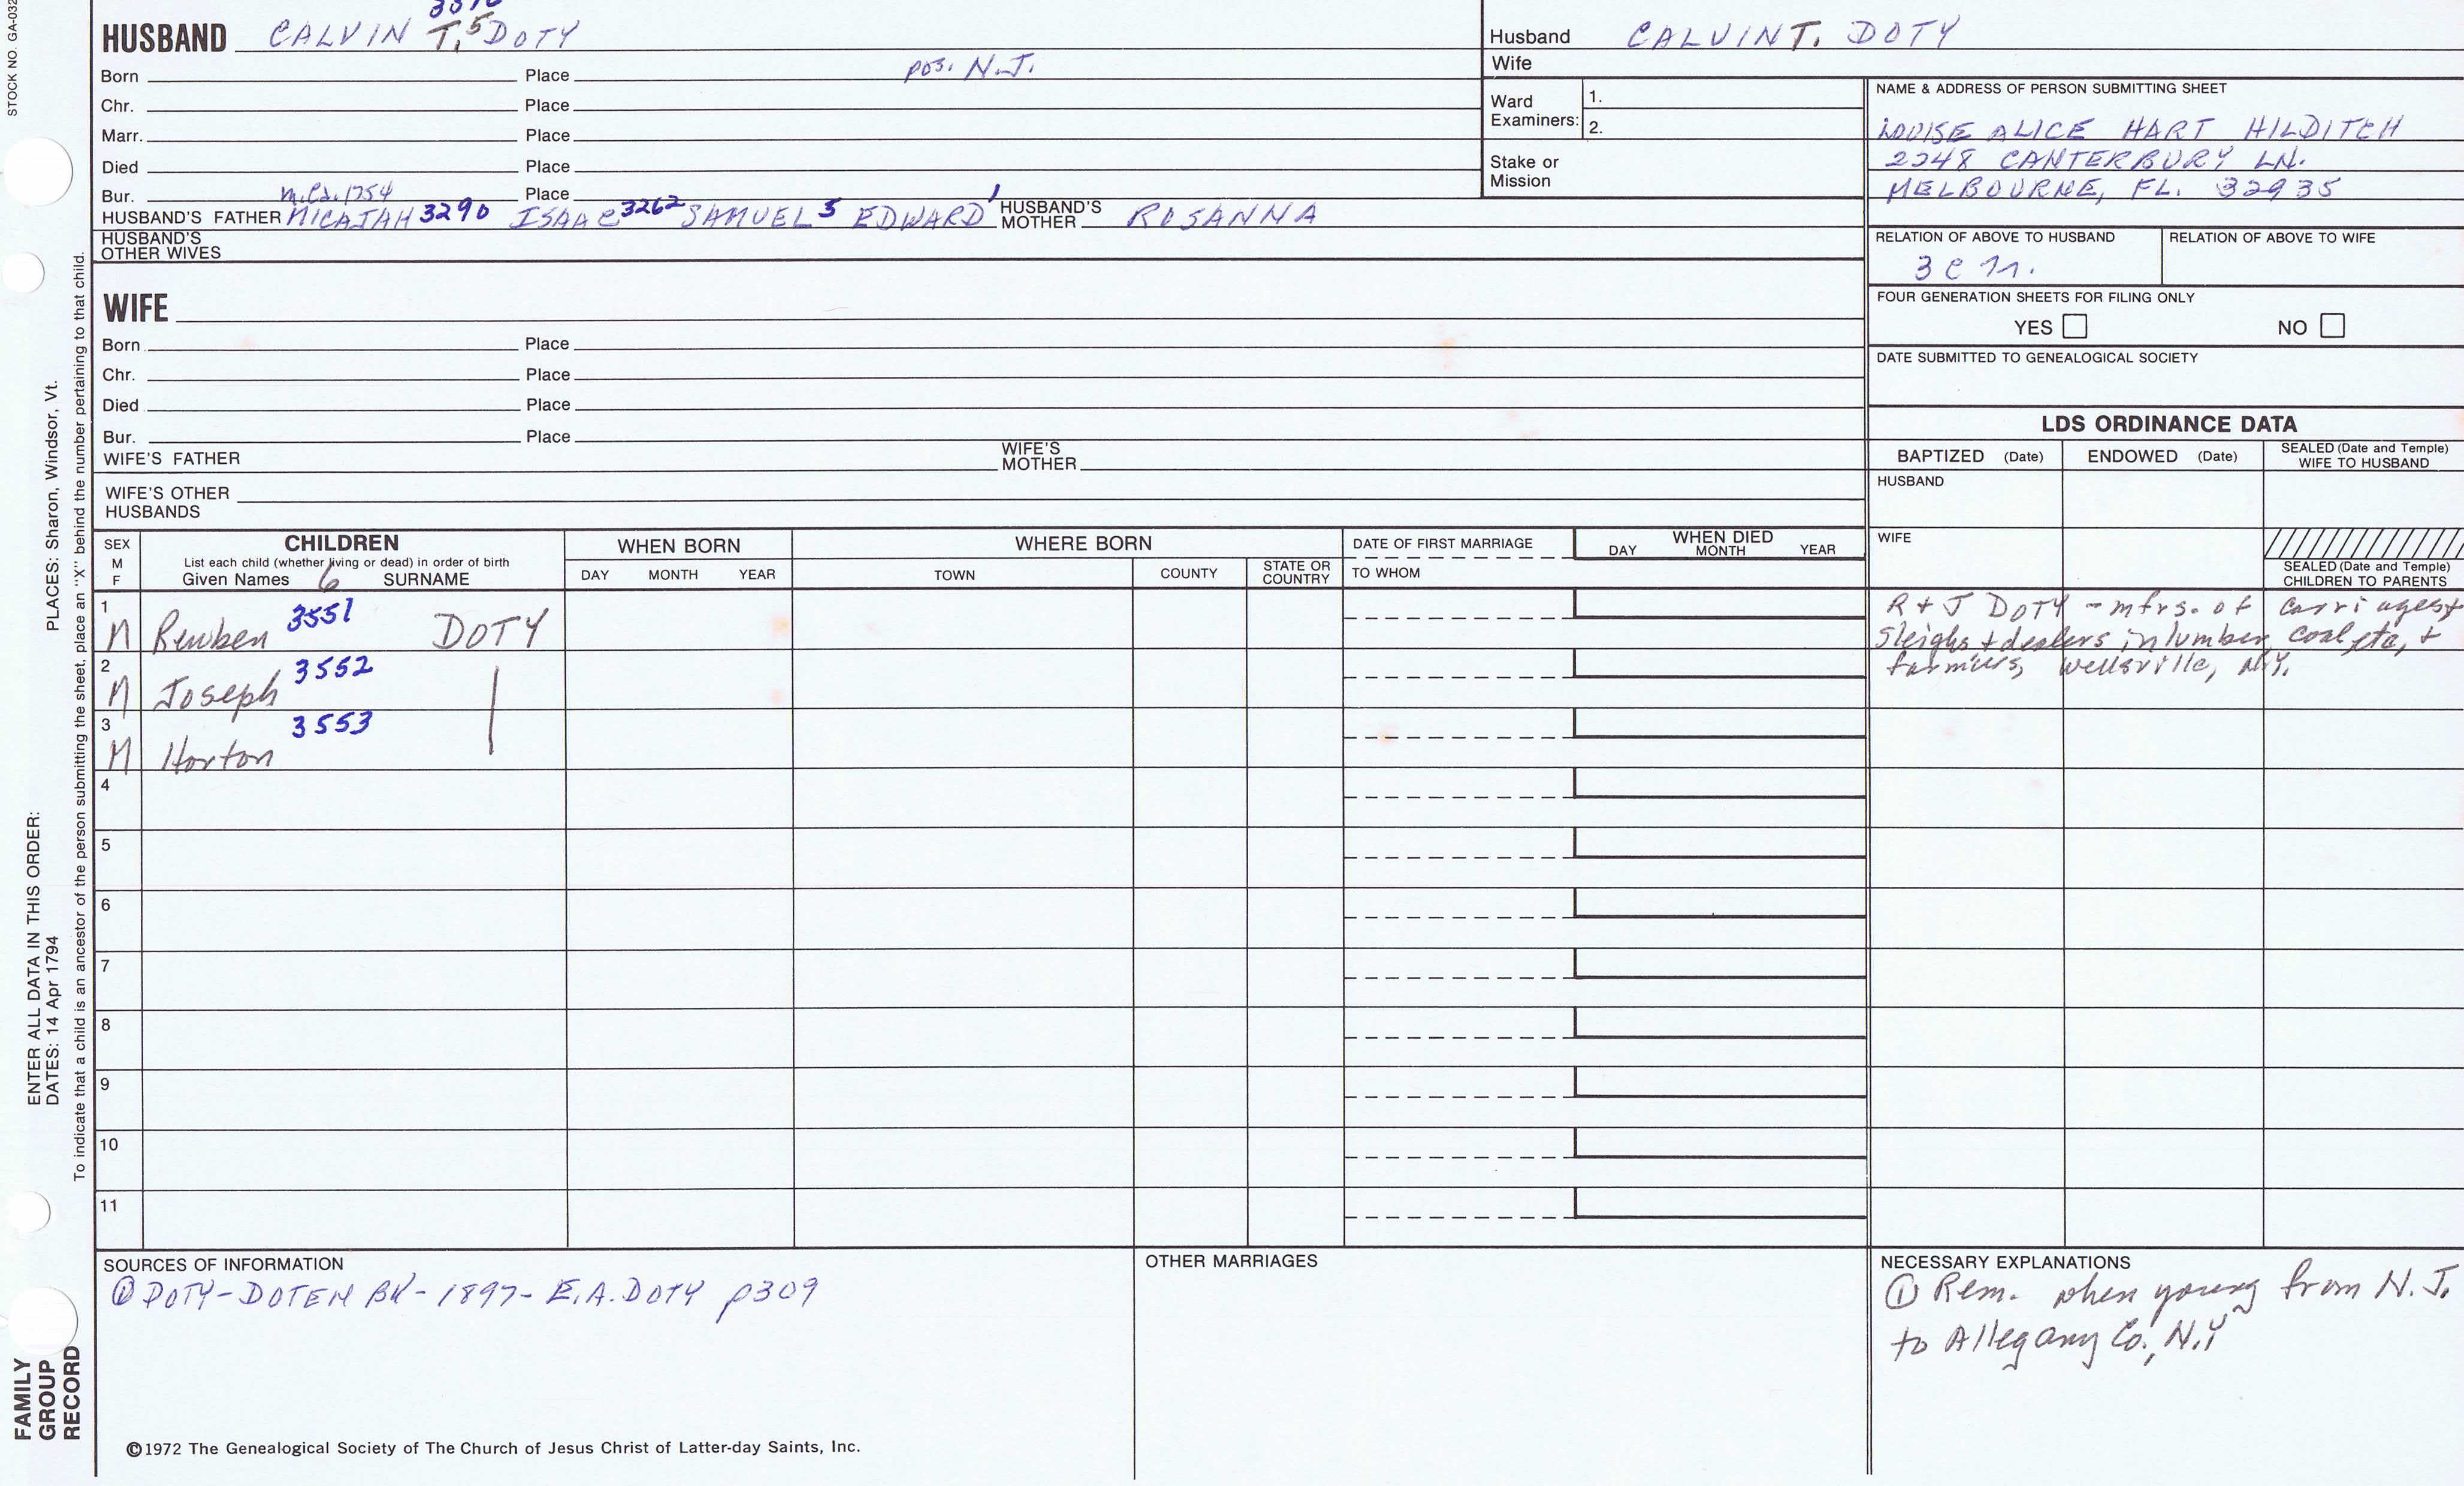 STOCK NO. GA-032
HUSBAND CALVIN T.5 DOTY
Husband CALVIN T. DOTY
Wife
Born Place pos. N.J.
Chr. Place
Marr. Place
Died Place
Bur. Place
m.Ca. 1754
HUSBAND'S FATHER MICAJAH 3290 ISAAC 3262 SAMUEL 5 EDWARD 1 HUSBAND'S MOTHER ROSANNA
HUSBAND'S OTHER WIVES
Ward Examiners: 1.
2.
Stake or Mission
NAME & ADDRESS OF PERSON SUBMITTING SHEET
LOUISE ALICE HART HILDITCH
2248 CANTERBURY LN.
MELBOURNE, FL. 32935
RELATION OF ABOVE TO HUSBAND RELATION OF ABOVE TO WIFE
FOUR GENERATION SHEETS FOR FILING ONLY
YES NO
DATE SUBMITTED TO GENEALOGICAL SOCIETY
WIFE
Born Place
Chr. Place
Died Place
Bur. Place
WIFE'S FATHER WIFE'S MOTHER
WIFE'S OTHER HUSBANDS
LDS ORDINANCE DATA
BAPTIZED (Date) ENDOWED (Date) SEALED (Date and Temple) WIFE TO HUSBAND
HUSBAND
WIFE
SEALED (Date and Temple) CHILDREN TO PARENTS
SEX M F
CHILDREN
List each child (whether living or dead) in order of birth
Given Names 6 SURNAME
WHEN BORN
DAY MONTH YEAR
WHERE BORN
TOWN COUNTY STATE OR COUNTRY
DATE OF FIRST MARRIAGE
TO WHOM
WHEN DIED
DAY MONTH YEAR
1 M Reuben 3551 DOTY
2 M Joseph 3552
3 M Horton 3553
4
5
6
7
8
9
10
11
R + J DOTY - mfrs. of carriages +
sleighs + dealers in lumber, coal etc, +
farmers, Wellsville, N.Y.
SOURCES OF INFORMATION
① DOTY-DOTEN BK - 1897 - E.A. DOTY p309
OTHER MARRIAGES
NECESSARY EXPLANATIONS
① Rem. when young from N.J.
to Allegany Co., N.Y
©1972 The Genealogical Society of The Church of Jesus Christ of Latter-day Saints, Inc.
FAMILY GROUP RECORD
ENTER ALL DATA IN THIS ORDER:
DATES: 14 Apr 1794 PLACES: Sharon, Windsor, Vt.
To indicate that a child is an ancestor of the person submitting the sheet, place an "X" behind the number pertaining to that child.